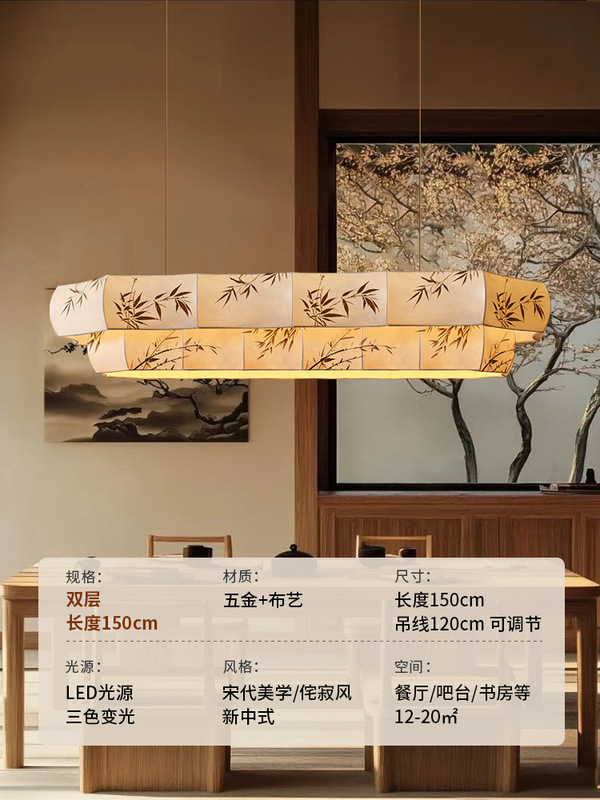 规格：
双层
长度150cm
材质：
五金+布艺
尺寸：
长度150cm
吊线120cm 可调节
光源：
LED光源
三色变光
风格：
宋代美学/侘寂风
新中式
空间：
餐厅/吧台/书房等
12-20㎡